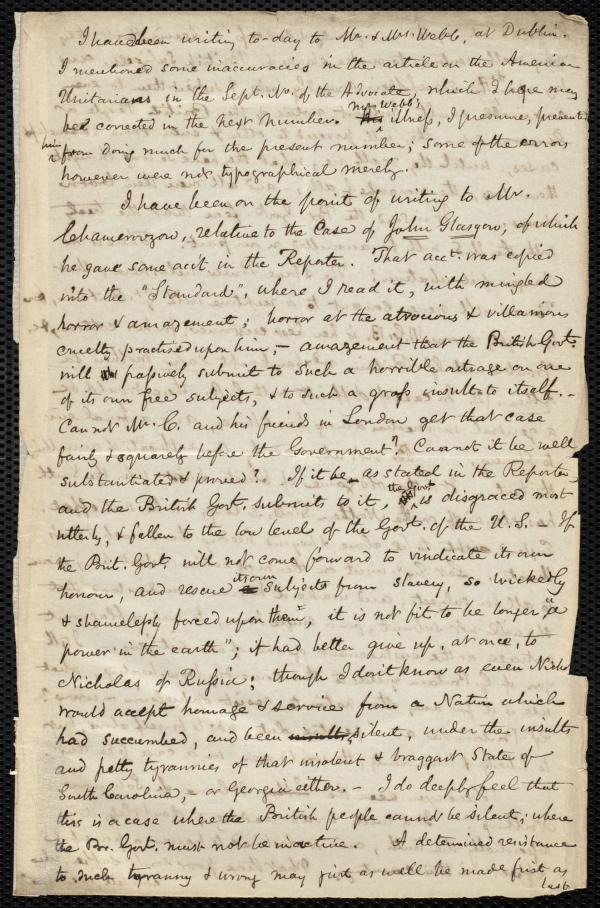 I have been writing to-day to Mr. & Mrs. Webb, at Dublin.
I mentioned some inaccuracies in the article on the American
Unitarians in the Sept. No. of the Advocate, which I hope may
be corrected in the next number. His Mr. Webb's illness, I presume, prevented
him from doing much for the present number; some of the errors
however were not typographical merely.
I have been on the point of writing to Mr.
Chamerovzow, relative to the Case of John Glasgow, of which
he gave some acct. in the Reporter. That acct. was copied
into the "Standard", where I read it, with mingled
horror & amazement; horror at the atrocious & villainous
cruelty practised upon him, – amazement that the British Govt.
will passively submit to such a horrible outrage on one
of its own free subjects, & to such a gross insult to itself. –
Cannot Mr. C. and his friends in London get that case
fairly & squarely before the Government? Cannot it be well
substantiated & proved? If it be as stated in the Reporter,
and the British Govt. submits to it, the Govt is disgraced most
utterly, & fallen to the low level of the Govt. of the U.S. – If
the Brit. Govt. will not come forward to vindicate its own
honour, and rescue its own subjects from slavery, so wickedly
& shamelessly forced upon them, it is not fit to be longer "a
power in the earth"; it had better give up, at once, to
Nicholas of Russia; though I don't know as even Nichs
would accept homage & service from a Nation which
had succumbed, and been insults, silent, under the insults
and petty tyrannies of that insolent & braggart State of
South Carolina, – or Georgia either. – I do deeply feel that
this is a case where the British people cannot be silent; where
the Br. Govt. must not be inactive. A determined resistance
to such tyranny & wrong may just as well be made first as
last